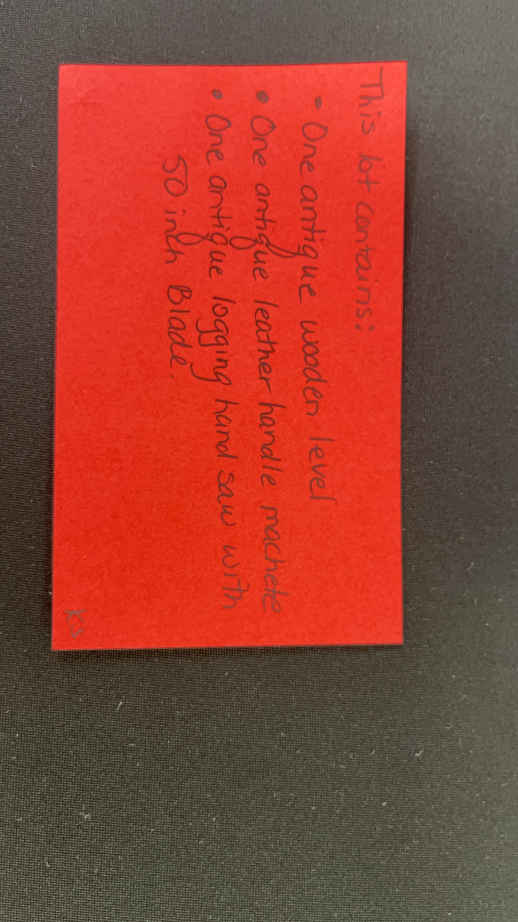 This lot contains:
• One antique wooden level
• One antique leather handle machete
• One antique logging hand saw with
50 inch Blade.